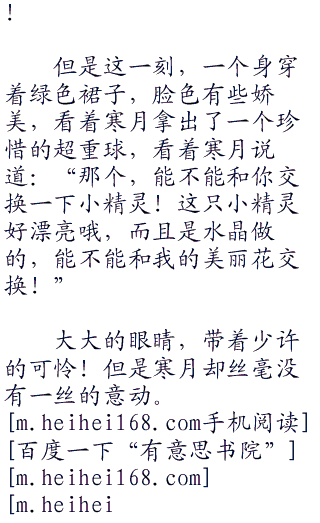 !
但是这一刻，一个身穿
着绿色裙子，脸色有些娇
美，看着寒月拿出了一个珍
惜的超重球，看着寒月说
道：“那个，能不能和你交
换一下小精灵！这只小精灵
好漂亮哦，而且是水晶做
的，能不能和我的美丽花交
换！”
大大的眼睛，带着少许
的可怜！但是寒月却丝毫没
有一丝的意动。
[m.heihei168.com手机阅读]
[百度一下“有意思书院”]
[m.heihei168.com]
[m.heihei